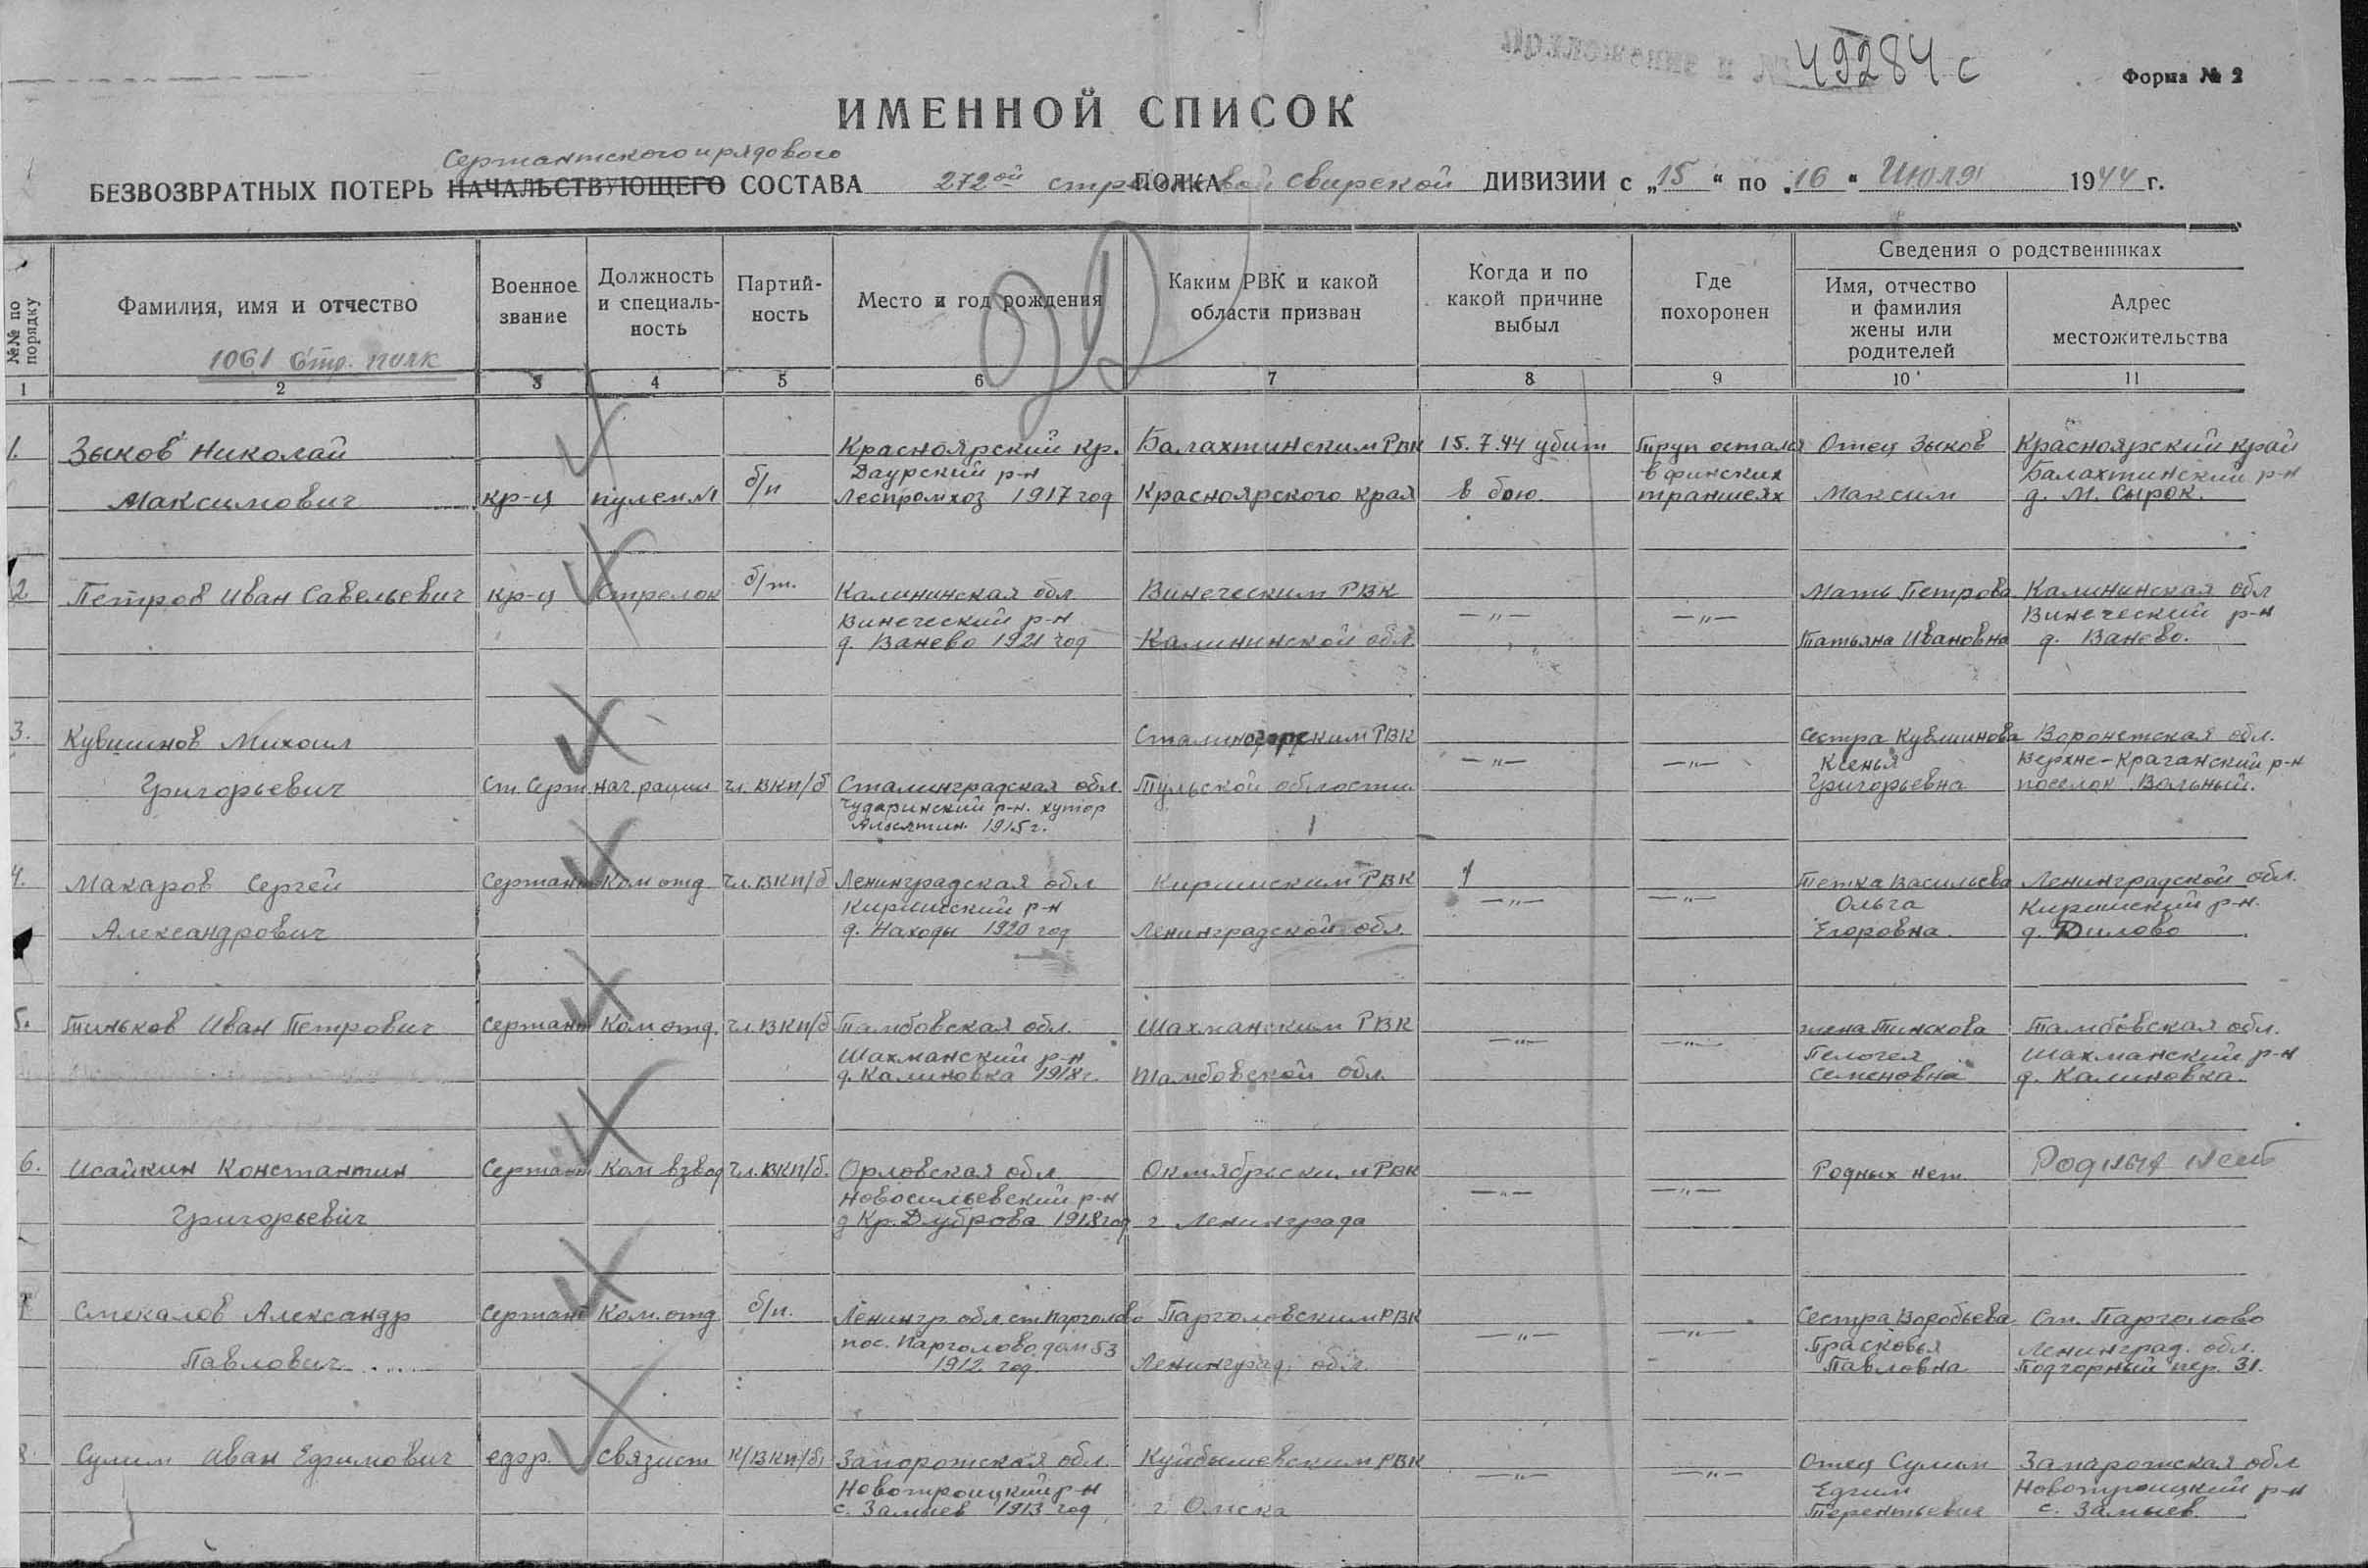 49284с
Форма № 2
ИМЕННОЙ СПИСОК
Сержантского и рядового
БЕЗВОЗВРАТНЫХ ПОТЕРЬ НАЧАЛЬСТВУЮЩЕГО СОСТАВА 272ой стрелковой Свирской ПОЛКА ДИВИЗИИ с „15“ по „16“ Июля 1944 г.
№№ по порядку
Фамилия, имя и отчество
1061 Стр. полк
Военное звание
Должность и специаль-
ность
Партий-
ность
Место и год рождения
Каким РВК и какой области призван
Когда и по какой причине выбыл
Где похоронен
Сведения о родственниках
Имя, отчество и фамилия жены или родителей
Адрес местожительства
1 2 3 4 5 6 7 8 9 10 11
1. Зыков Николай Красноярский кр. Балахтинским РВК 15.7.44 убит Труп остался Отец Зыков Красноярский край
Даурский р-н в финских Балахтинский р-н
Максимович кр-ц пулем № б/п Леспромхоз 1917 год Красноярского края в бою. траншеях Максим д. М. Сырок.
2 Петров Иван Савельевич кр-ц Стрелок б/п. Калининская обл Винеческим РВК Мать Петрова Калининская обл
Винеческий р-н —„— —„— Винеческий р-н
д. Ванево 1921 год Калининской обл. Татьяна Ивановна д. Ванево.
3. Кувшинов Михаил Сталиногорским РВК Сестра Кувшинова Воронежская обл.
—„— —„— Ксенья р-н
Григорьевич Ст. Серж нач. рации чл. ВКП/б Сталинградская обл. Тульской области Григорьевна поселок Вольный.
р-н. хутор
1915 г.
4. Макаров Сергей Сержант Ком отд чл. ВКП/б Ленинградская обл Киришским РВК Тетка Васильева Ленинградской обл.
Киришский р-н —„— —„— Ольга Киришский р-н.
Александрович д. Находы 1920 год Ленинградской обл. Егоровна. д.
5. Тиньков Иван Петрович Сержант Ком отд. чл. ВКП/б Тамбовская обл. Шахманским РВК жена Тинькова Тамбовская обл.
Шахманский р-н —„— —„— Пелогея Шахманский р-н
д. Калиновка 1918 г. Тамбовской обл. Семеновна д. Калиновка.
6. Исайкин Константин Сержант Ком взвод чл. ВКП/б. Орловская обл Октябрьским РВК Родных нет Родных нет
Новосильевский р-н —„— —„—
Григорьевич д Кр. Дуброва 1918 год г Ленинграда
7 Смекалов Александр Сержант Ком. отд б/п. Ленингр. обл ст. Парголово Парголовским РВК Сестра Воробьева Ст. Парголово
пос. Парголово дом 53 —„— —„— Прасковья Ленинград. обл.
Павлович 1912 год Ленинград. обл. Павловна Подгорный пер. 31.
8. Сулим Иван Ефимович ефр. связист К/ВКП/б/ Запорожская обл. Куйбышевским РВК Отец Сулим Запорожская обл
Новотроицкий р-н —„— —„— Ефим Новотроицкий р-н
с. Замыев 1913 год г Омска Терентьевич с. Замыев